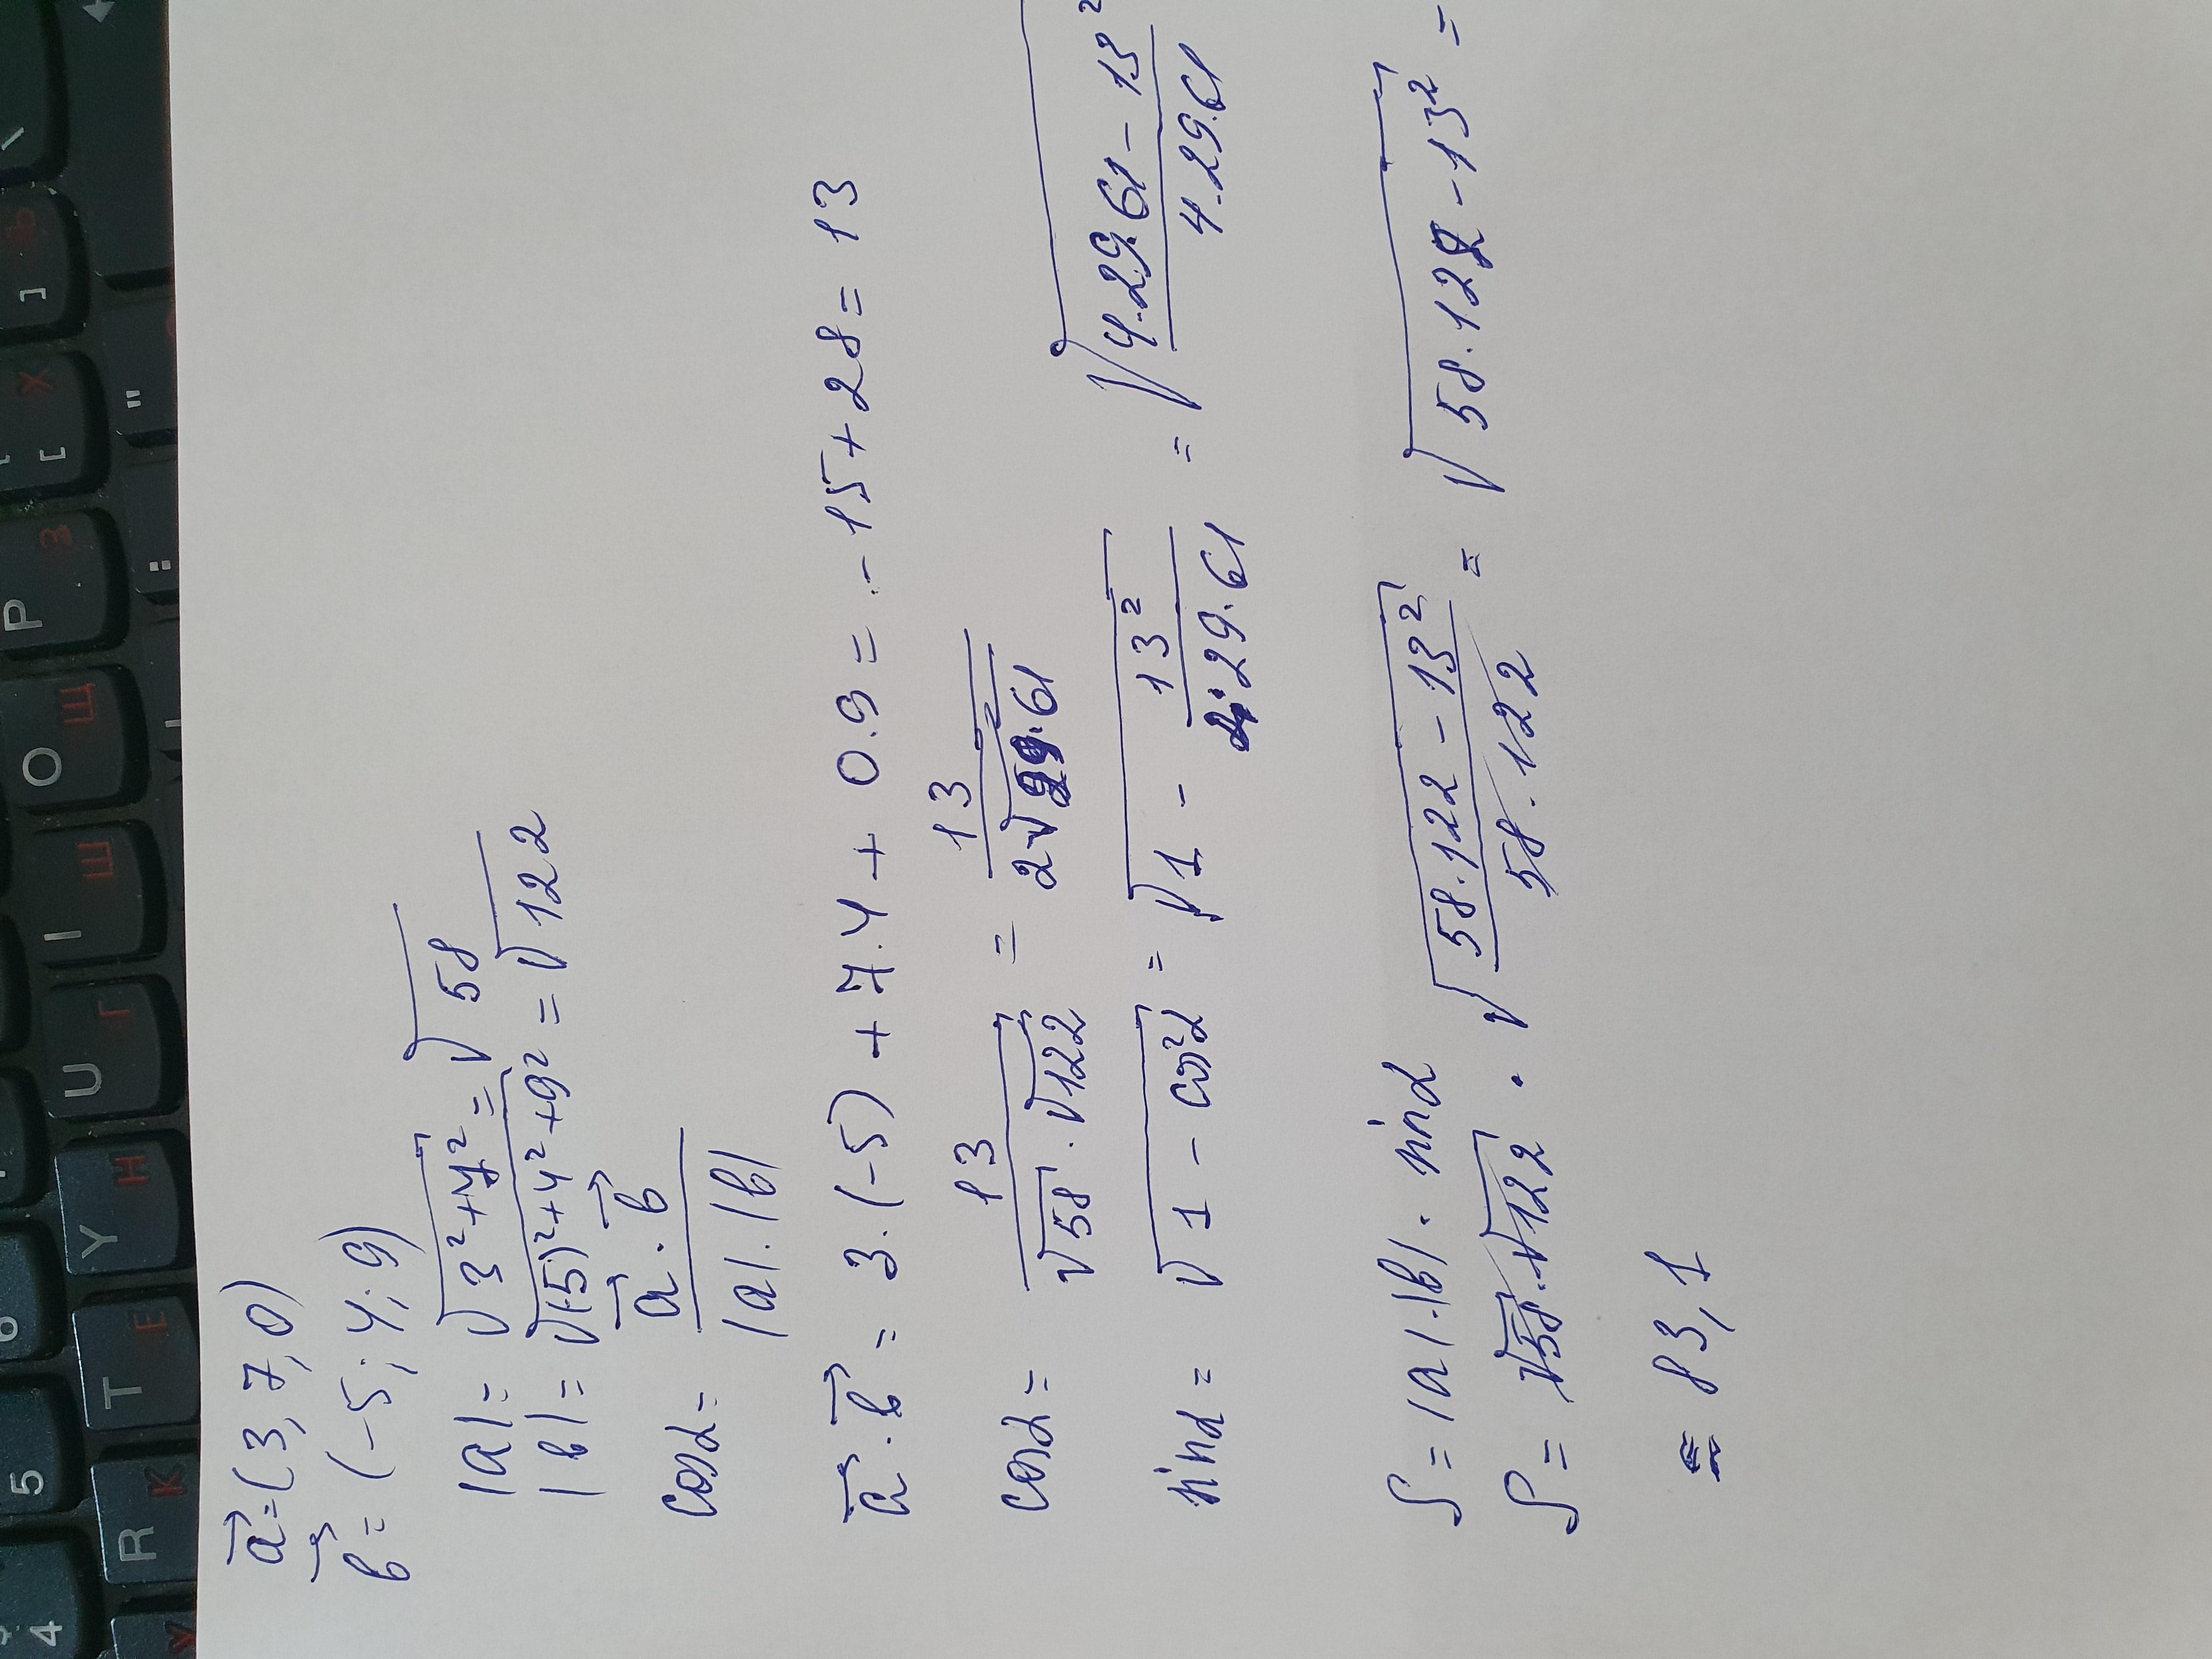 a⃗=(3,7,0)
b⃗=(-5;4;9)
|a|=√(3²+7²)=√58
|b|=√((-5)²+4²+9²)=√122
cosα= (a⃗·b⃗)/(|a|·|b|)
a⃗·b⃗ = 3·(-5)+7·4+0·9=-15+28=13
cosα= 13/(√58·√122) = 13/(2√(29·61))
sinα= √(1-cos²α) = √(1 - 13²/(4·29·61)) = √((4·29·61-13²)/(4·29·61))
S=|a|·|b|·sinα
S= √58·√122 · √((58·122-13²)/(58·122)) = √(58·122-13²) =
= 83,1
4 5 6
R T Y U I O P [ ]
К Е Н Г Ш Щ З Х Ъ
: "
\